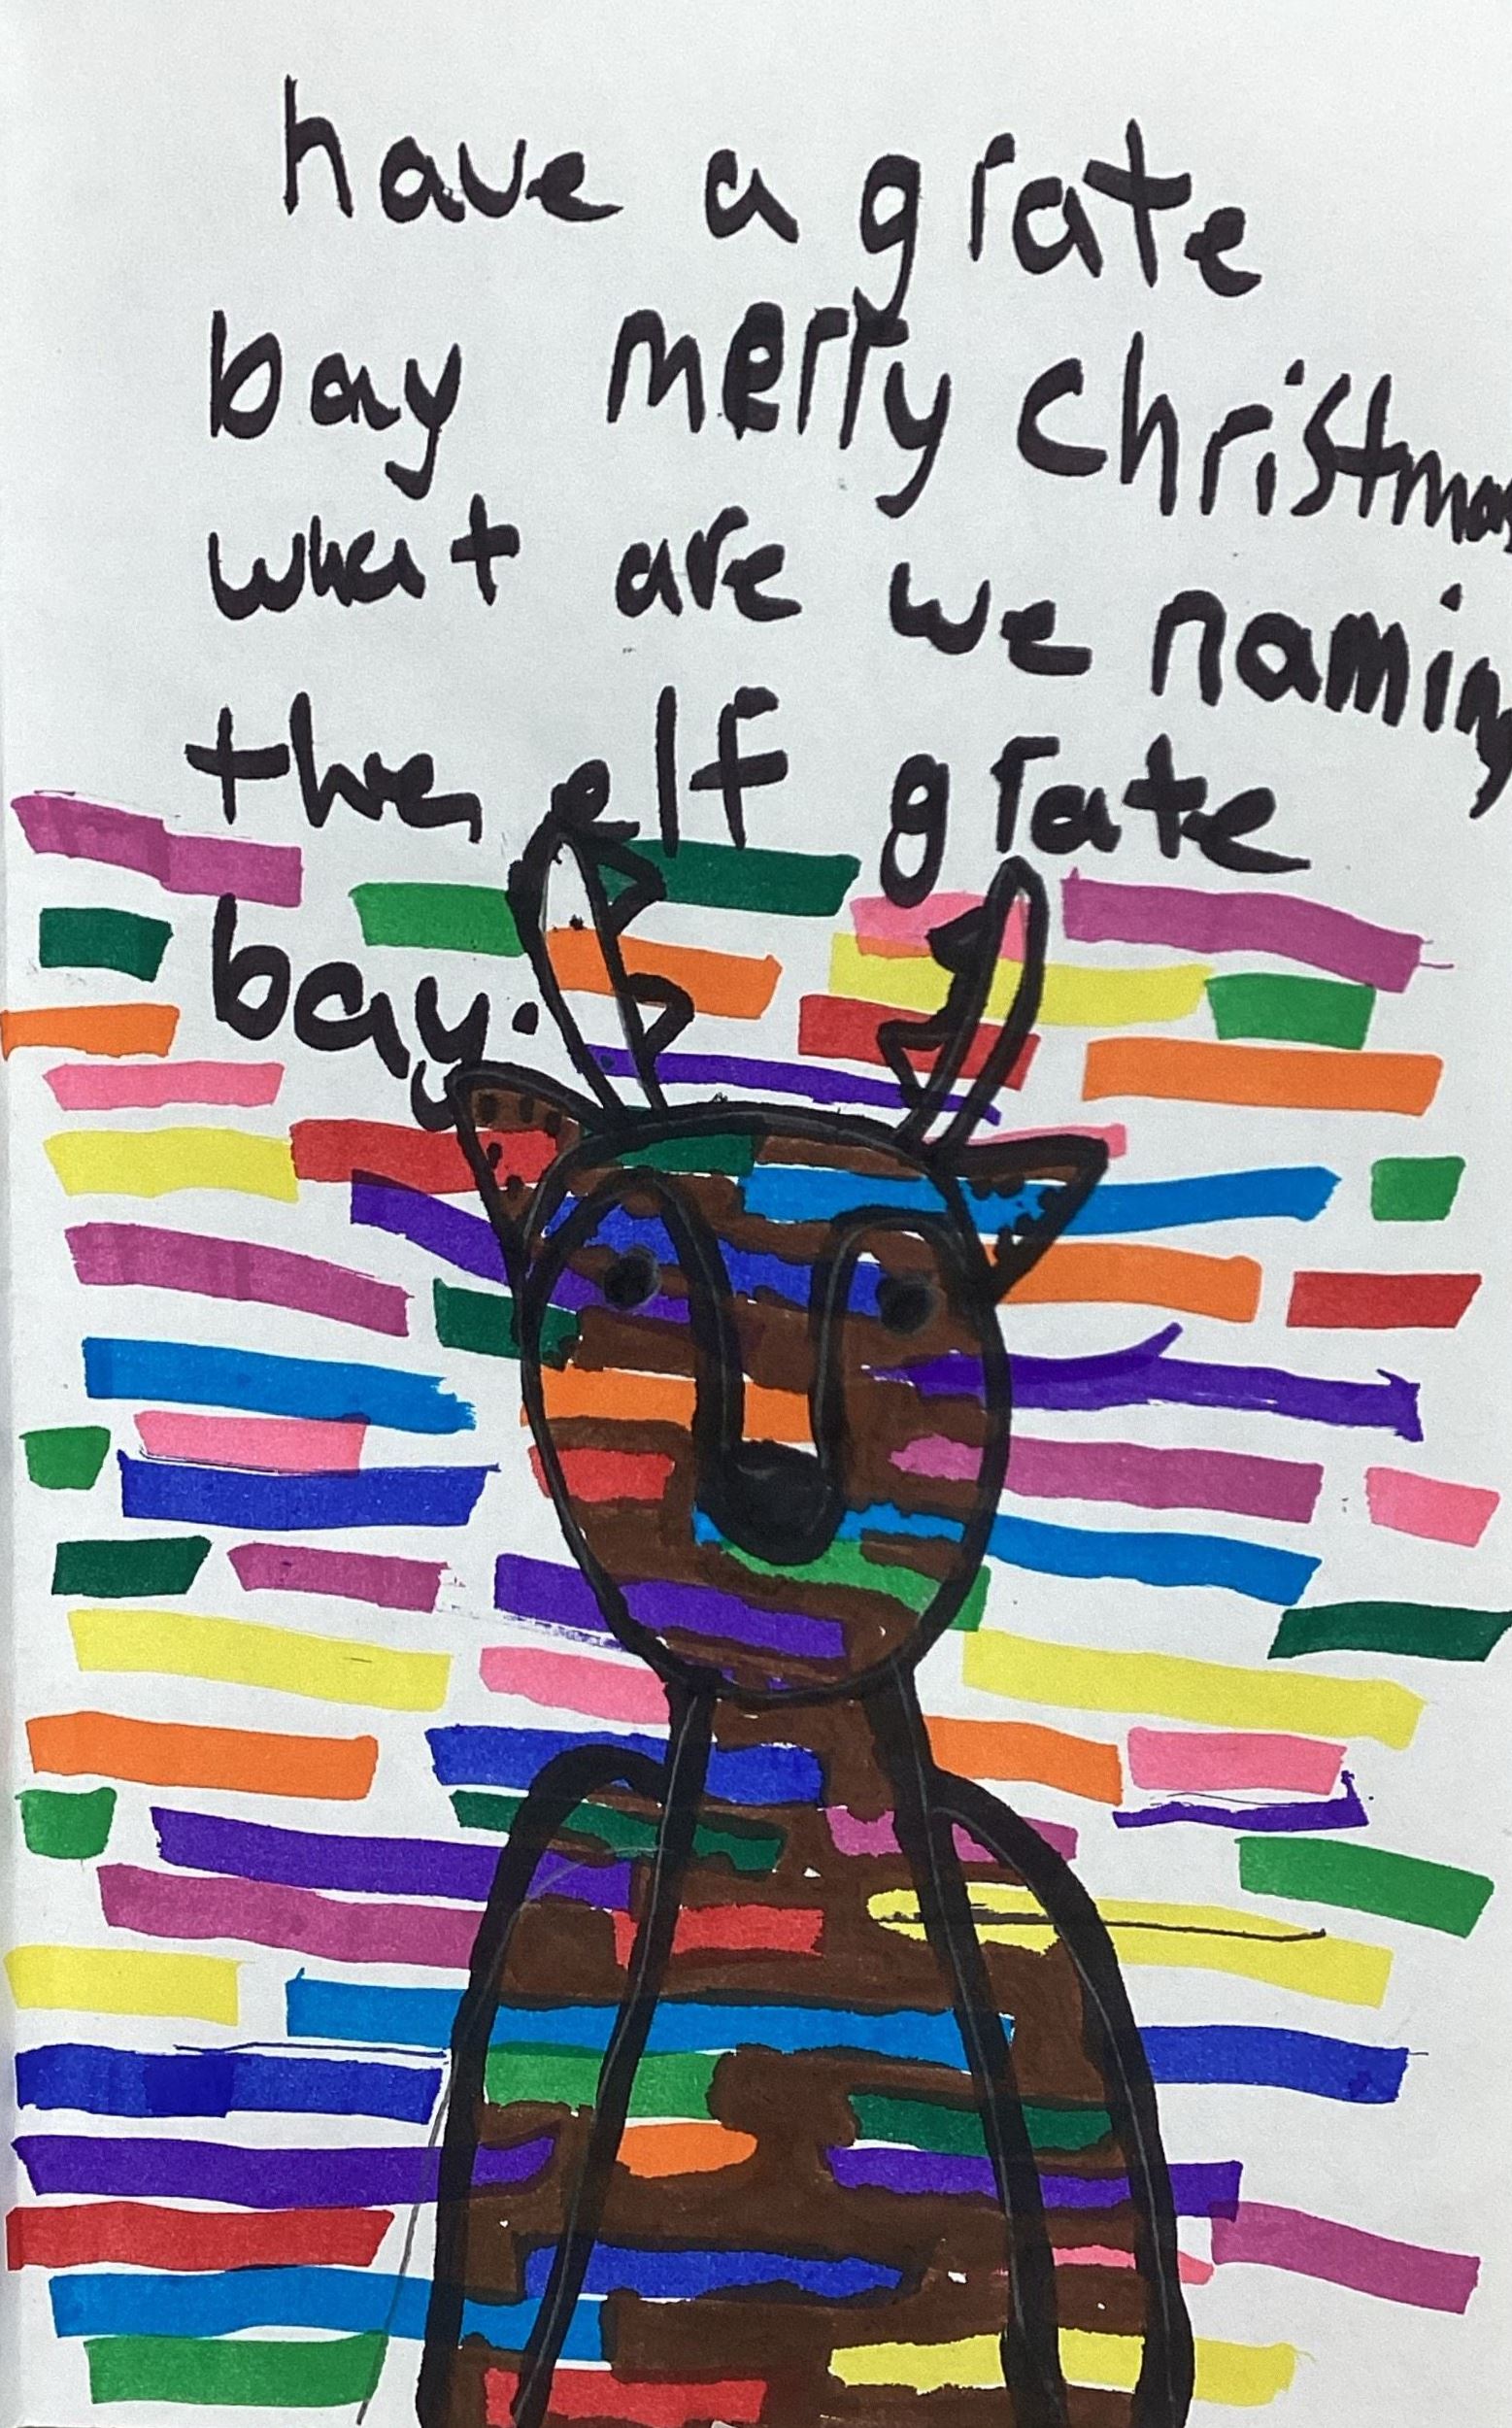 have a grate
bay merry christmas
what are we naming
the elf grate
bay.